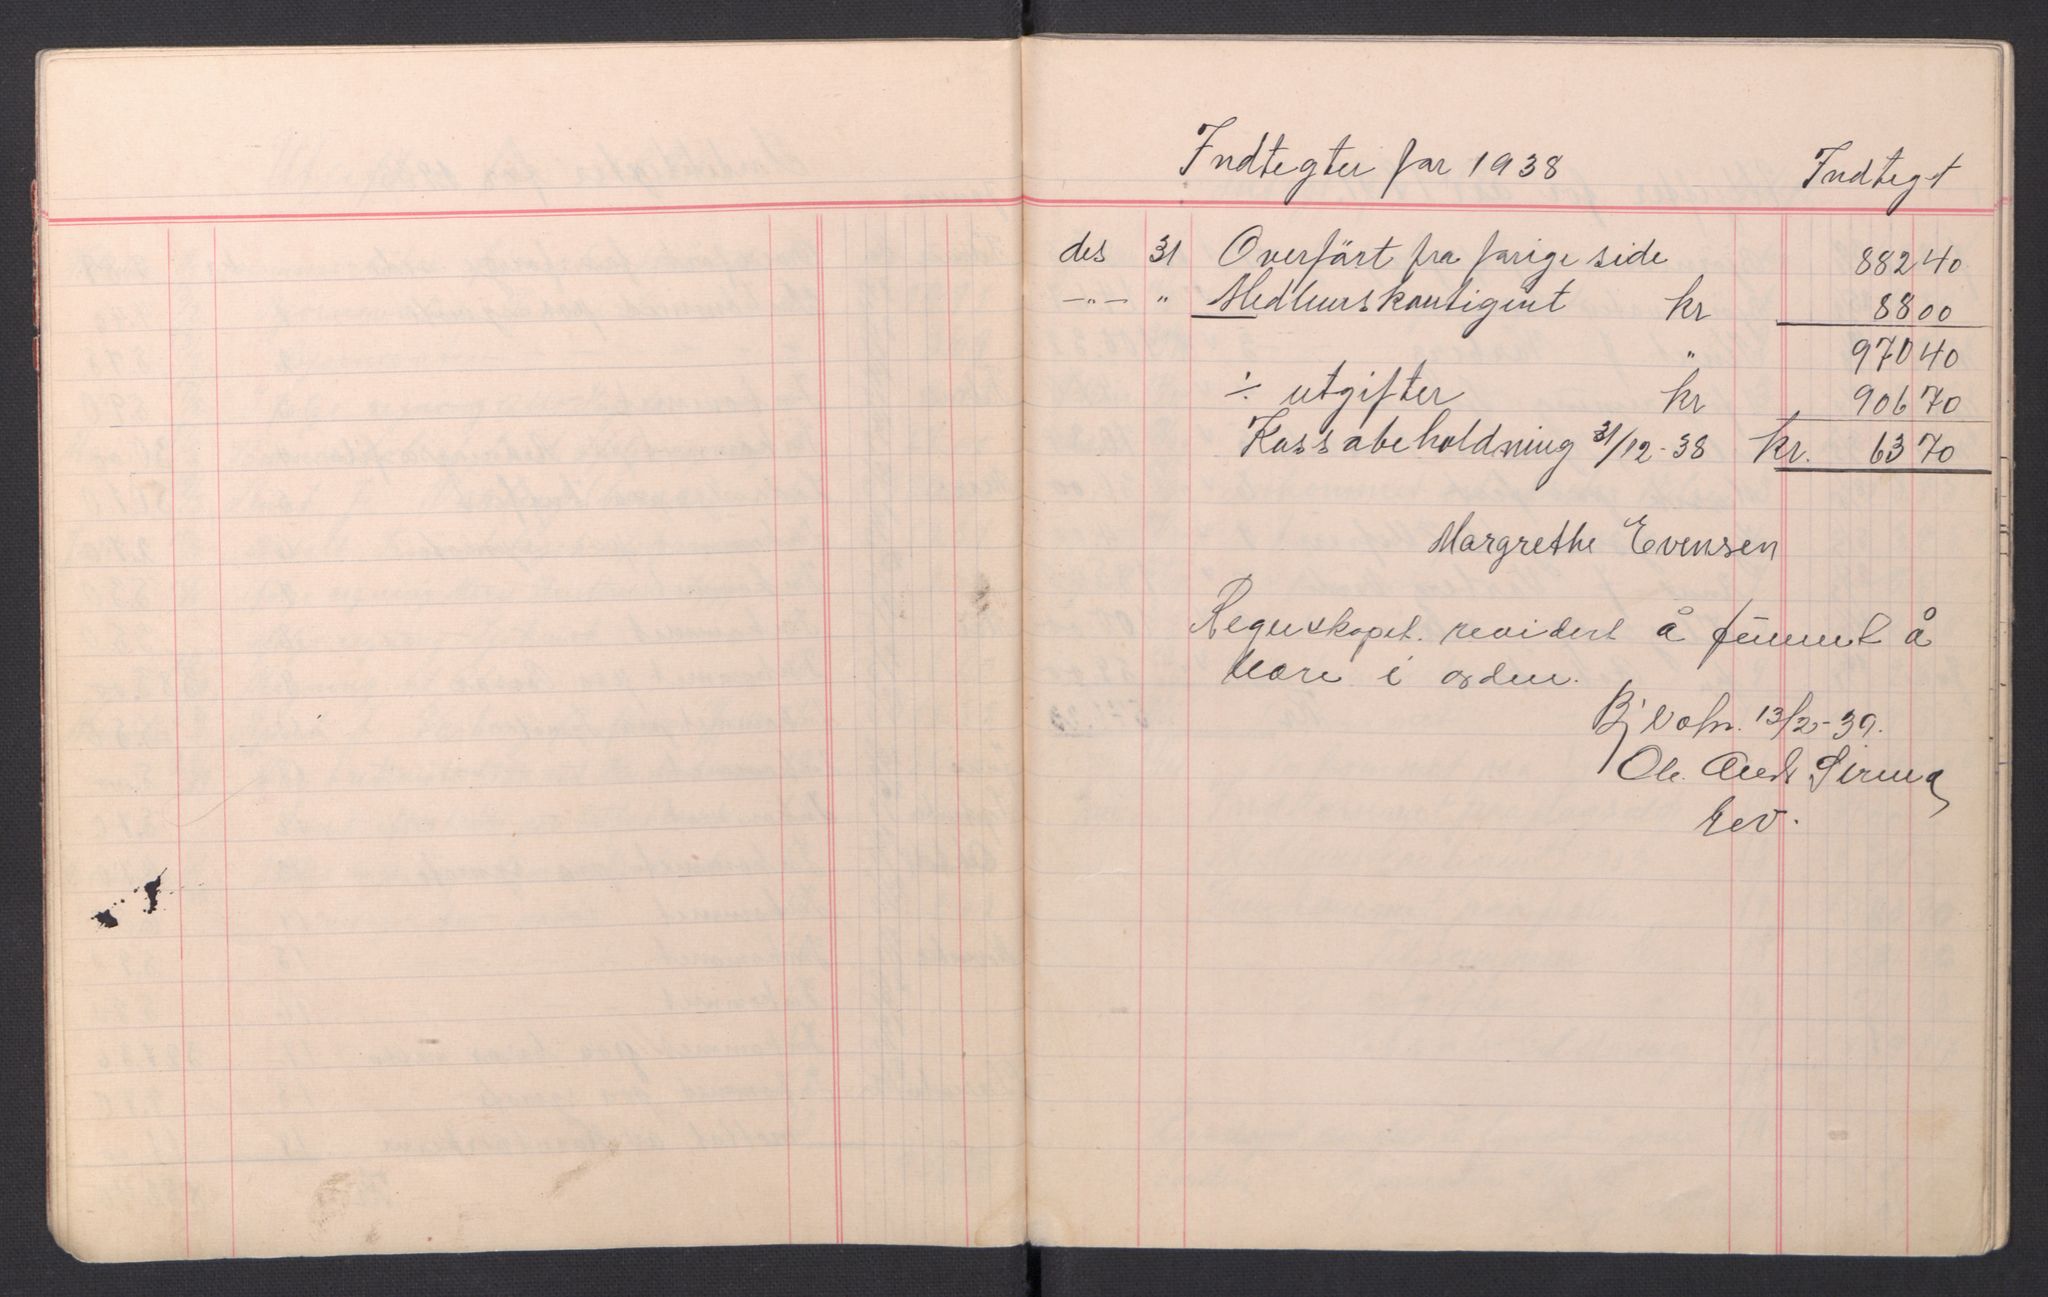 Indtegter for 1938 Indtegt
des 31 Overført fra forige side 882 40
-"- " Medlemskontigent kr 88 00
" 970 40
÷ utgifter kr 906 70
Kassabeholdning 31/12-38 kr. 63 70
Margrethe Evensen
Regnskapet revidert å funnet å
være i orden.
13/2-39.
Ole Andr
rev.